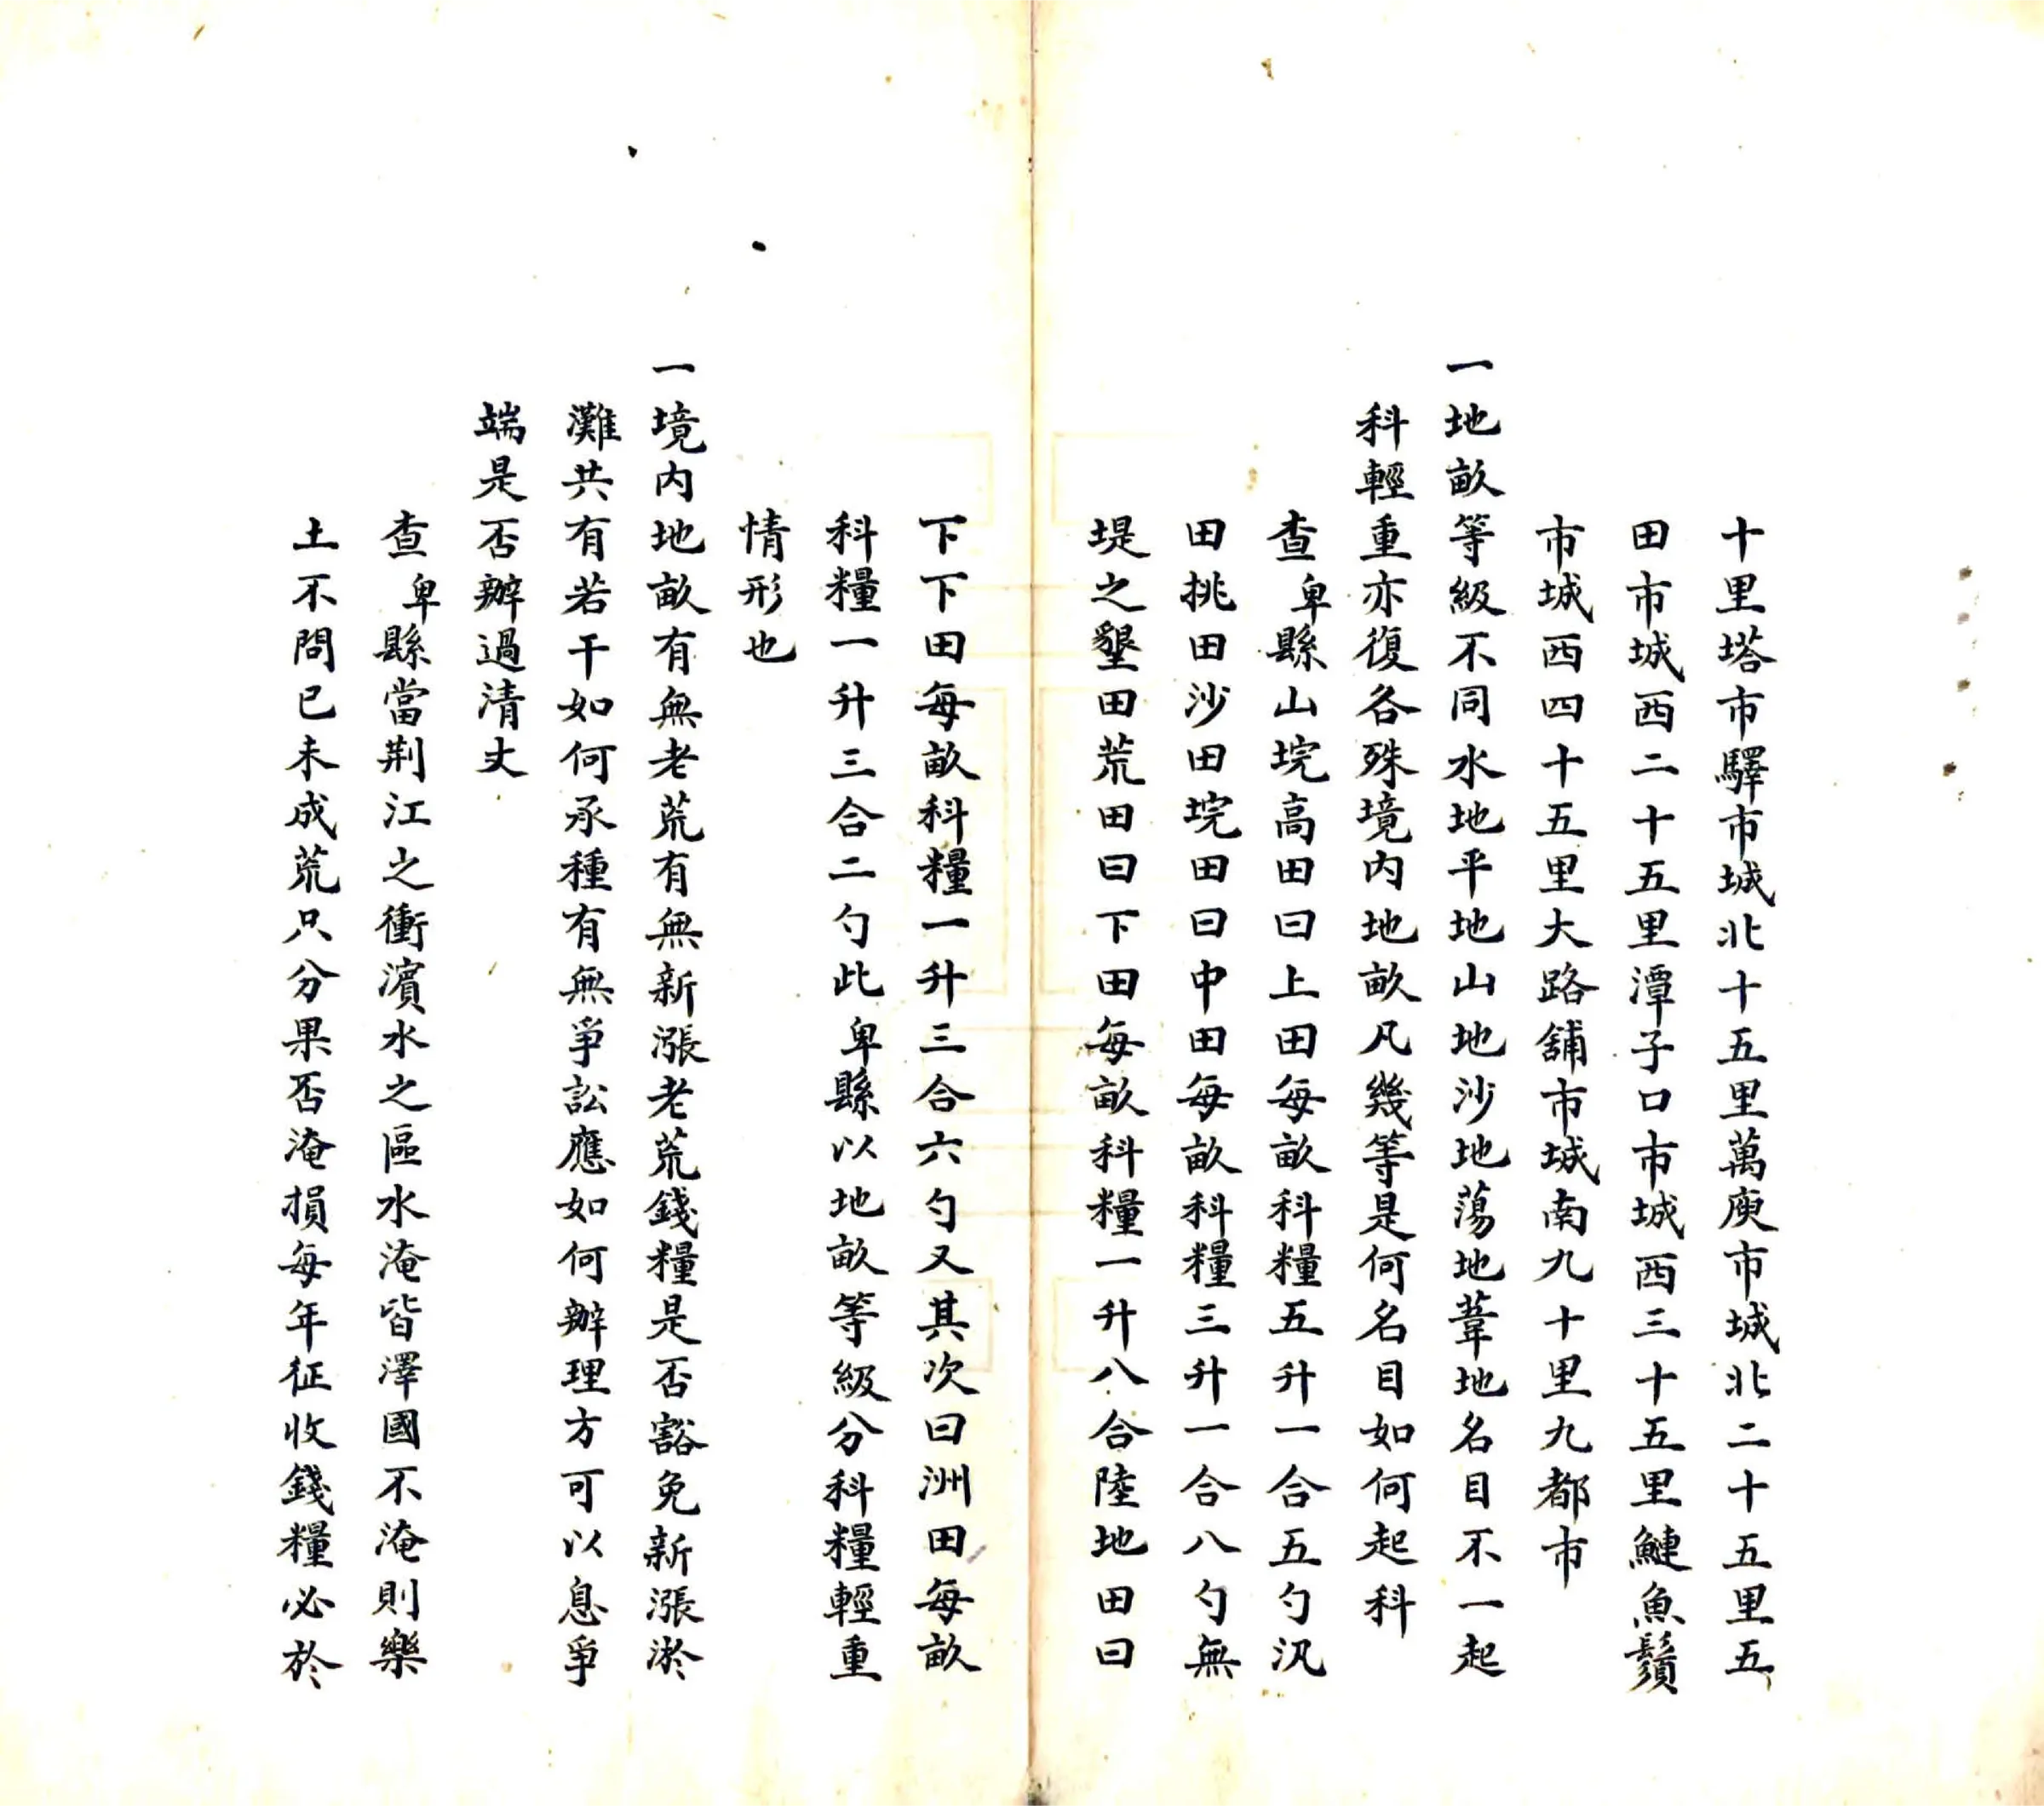 十里塔市驛市城北十五里萬庾市城北二十五里五
田市城西二十五里潭子口市城西三十五里鰱魚鬚
市城西四十五里大路舖市城南九十里九都市
一地畝等級不同水地平地山地沙地蕩地葦地名目不一起
科輕重亦復各殊境内地畝凡幾等是何名目如何起科
查卑縣山垸高田曰上田每畝科糧五升一合五勺汎
田挑田沙田垸田曰中田每畝科糧三升一合八勺無
堤之墾田荒田曰下田每畝科糧一升八合陸地田曰
下下田每畝科糧一升三合六勺又其次曰洲田每畝
科糧一升三合二勺此卑縣以地畝等級分科糧輕重
情形也
一境内地畝有無老荒有無新漲老荒錢糧是否豁免新漲淤
灘共有若干如何承種有無爭訟應如何辦理方可以息爭
端是否辦過清丈
查卑縣當荆江之衝濵水之區水淹皆澤國不淹則樂
土不問已未成荒只分果否淹損每年征收錢糧必於